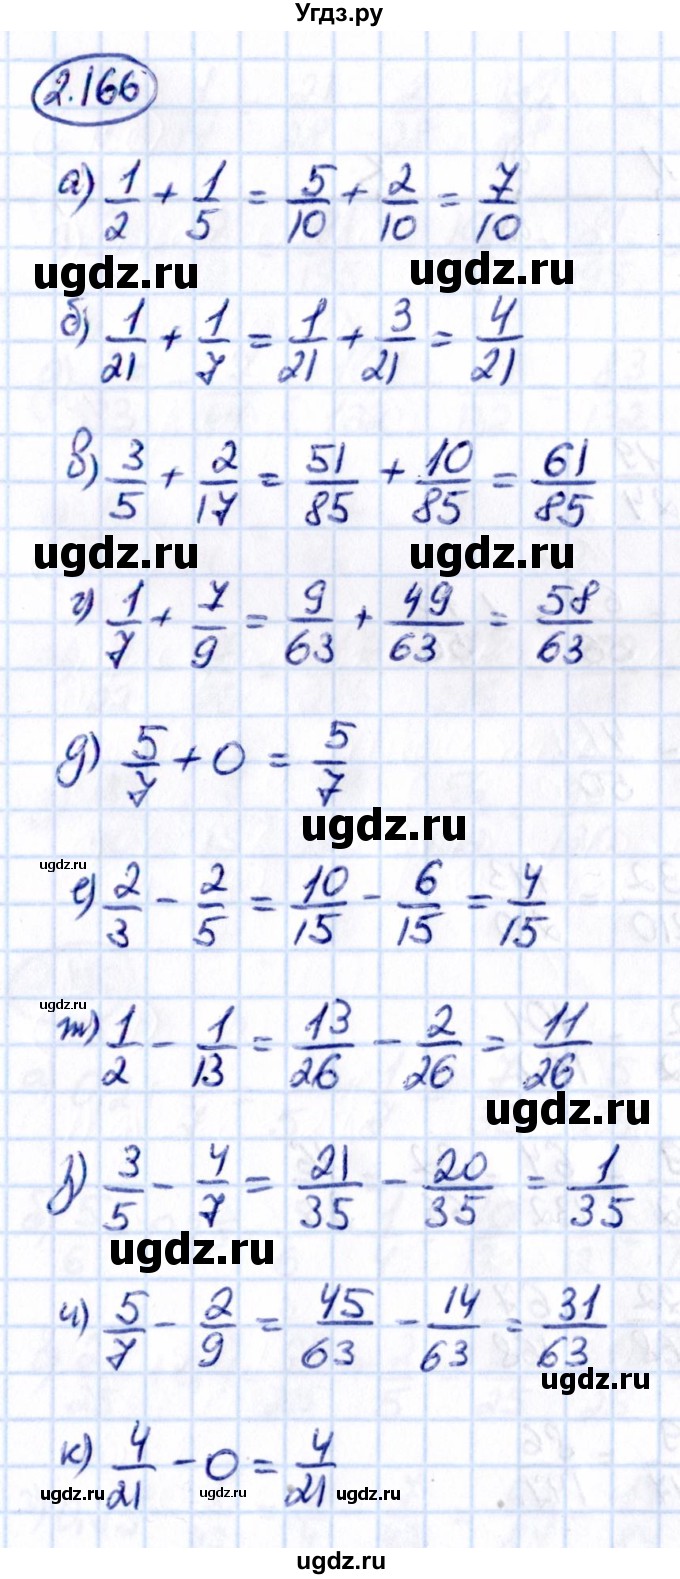 Угдз.ру
2.166
а) 1/2 + 1/5 = 5/10 + 2/10 = 7/10
ugdz.ru ugdz.ru
б) 1/21 + 1/7 = 1/21 + 3/21 = 4/21
в) 3/5 + 2/17 = 51/85 + 10/85 = 61/85
ugdz.ru ugdz.ru
г) 1/7 + 7/9 = 9/63 + 49/63 = 58/63
д) 5/7 + 0 = 5/7
ugdz.ru
ugdz.ru
е) 2/3 - 2/5 = 10/15 - 6/15 = 4/15
ugdz.ru
ж) 1/2 - 1/13 = 13/26 - 2/26 = 11/26
ugdz.ru
з) 3/5 - 4/7 = 21/35 - 20/35 = 1/35
ugdz.ru
и) 5/7 - 2/9 = 45/63 - 14/63 = 31/63
ugdz.ru
к) 4/21 - 0 = 4/21
ugdz.ru ugdz.ru ugdz.ru
ugdz.ru